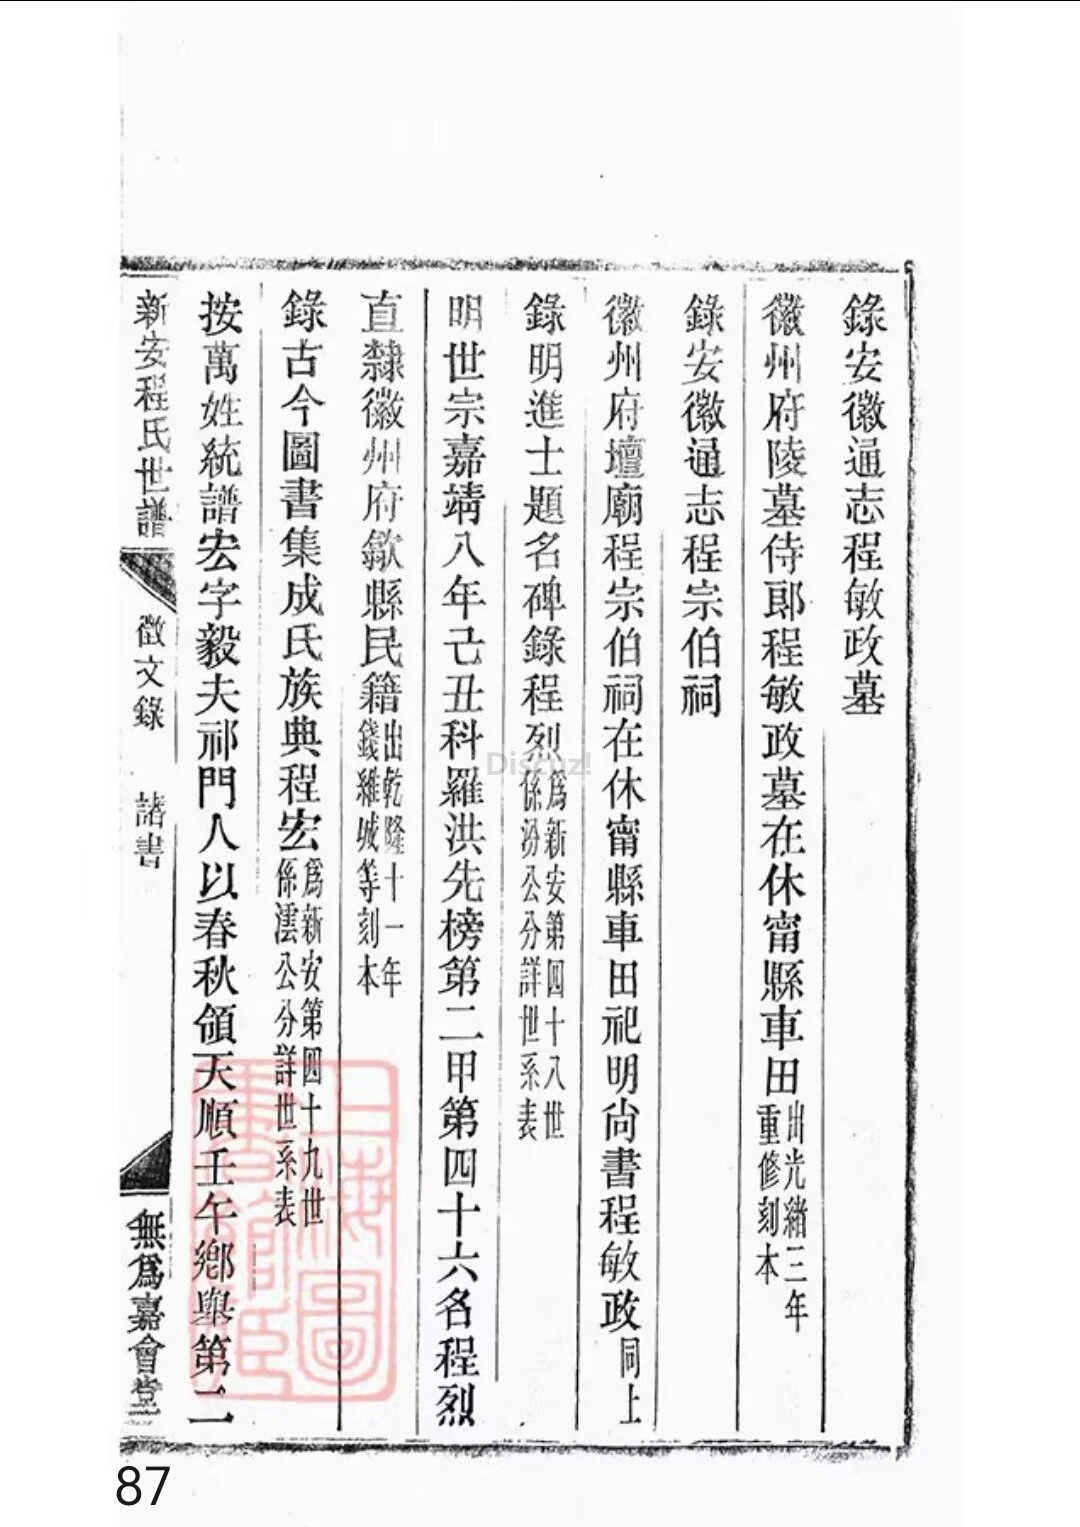 錄安徽通志程敏政墓
徽州府陵墓侍郎程敏政墓在休甯縣車田出光緒三年重修刻本
錄安徽通志程宗伯祠
徽州府壇廟程宗伯祠在休甯縣車田祀明尚書程敏政同上
錄明進士題名碑錄程烈為新安第四十八世係汾公分詳世系表
明世宗嘉靖八年己丑科羅洪先榜第二甲第四十六名程烈
直隸徽州府歙縣民籍出乾隆十一年錢維城等刻本
錄古今圖書集成氏族典程宏為新安第四十九世係澐公分詳世系表
按萬姓統譜宏字毅夫祁門人以春秋領天順壬午鄉舉第二
新安程氏世譜 徵文錄 諸書 無為嘉會堂
上海圖書館藏
Discuz!
87